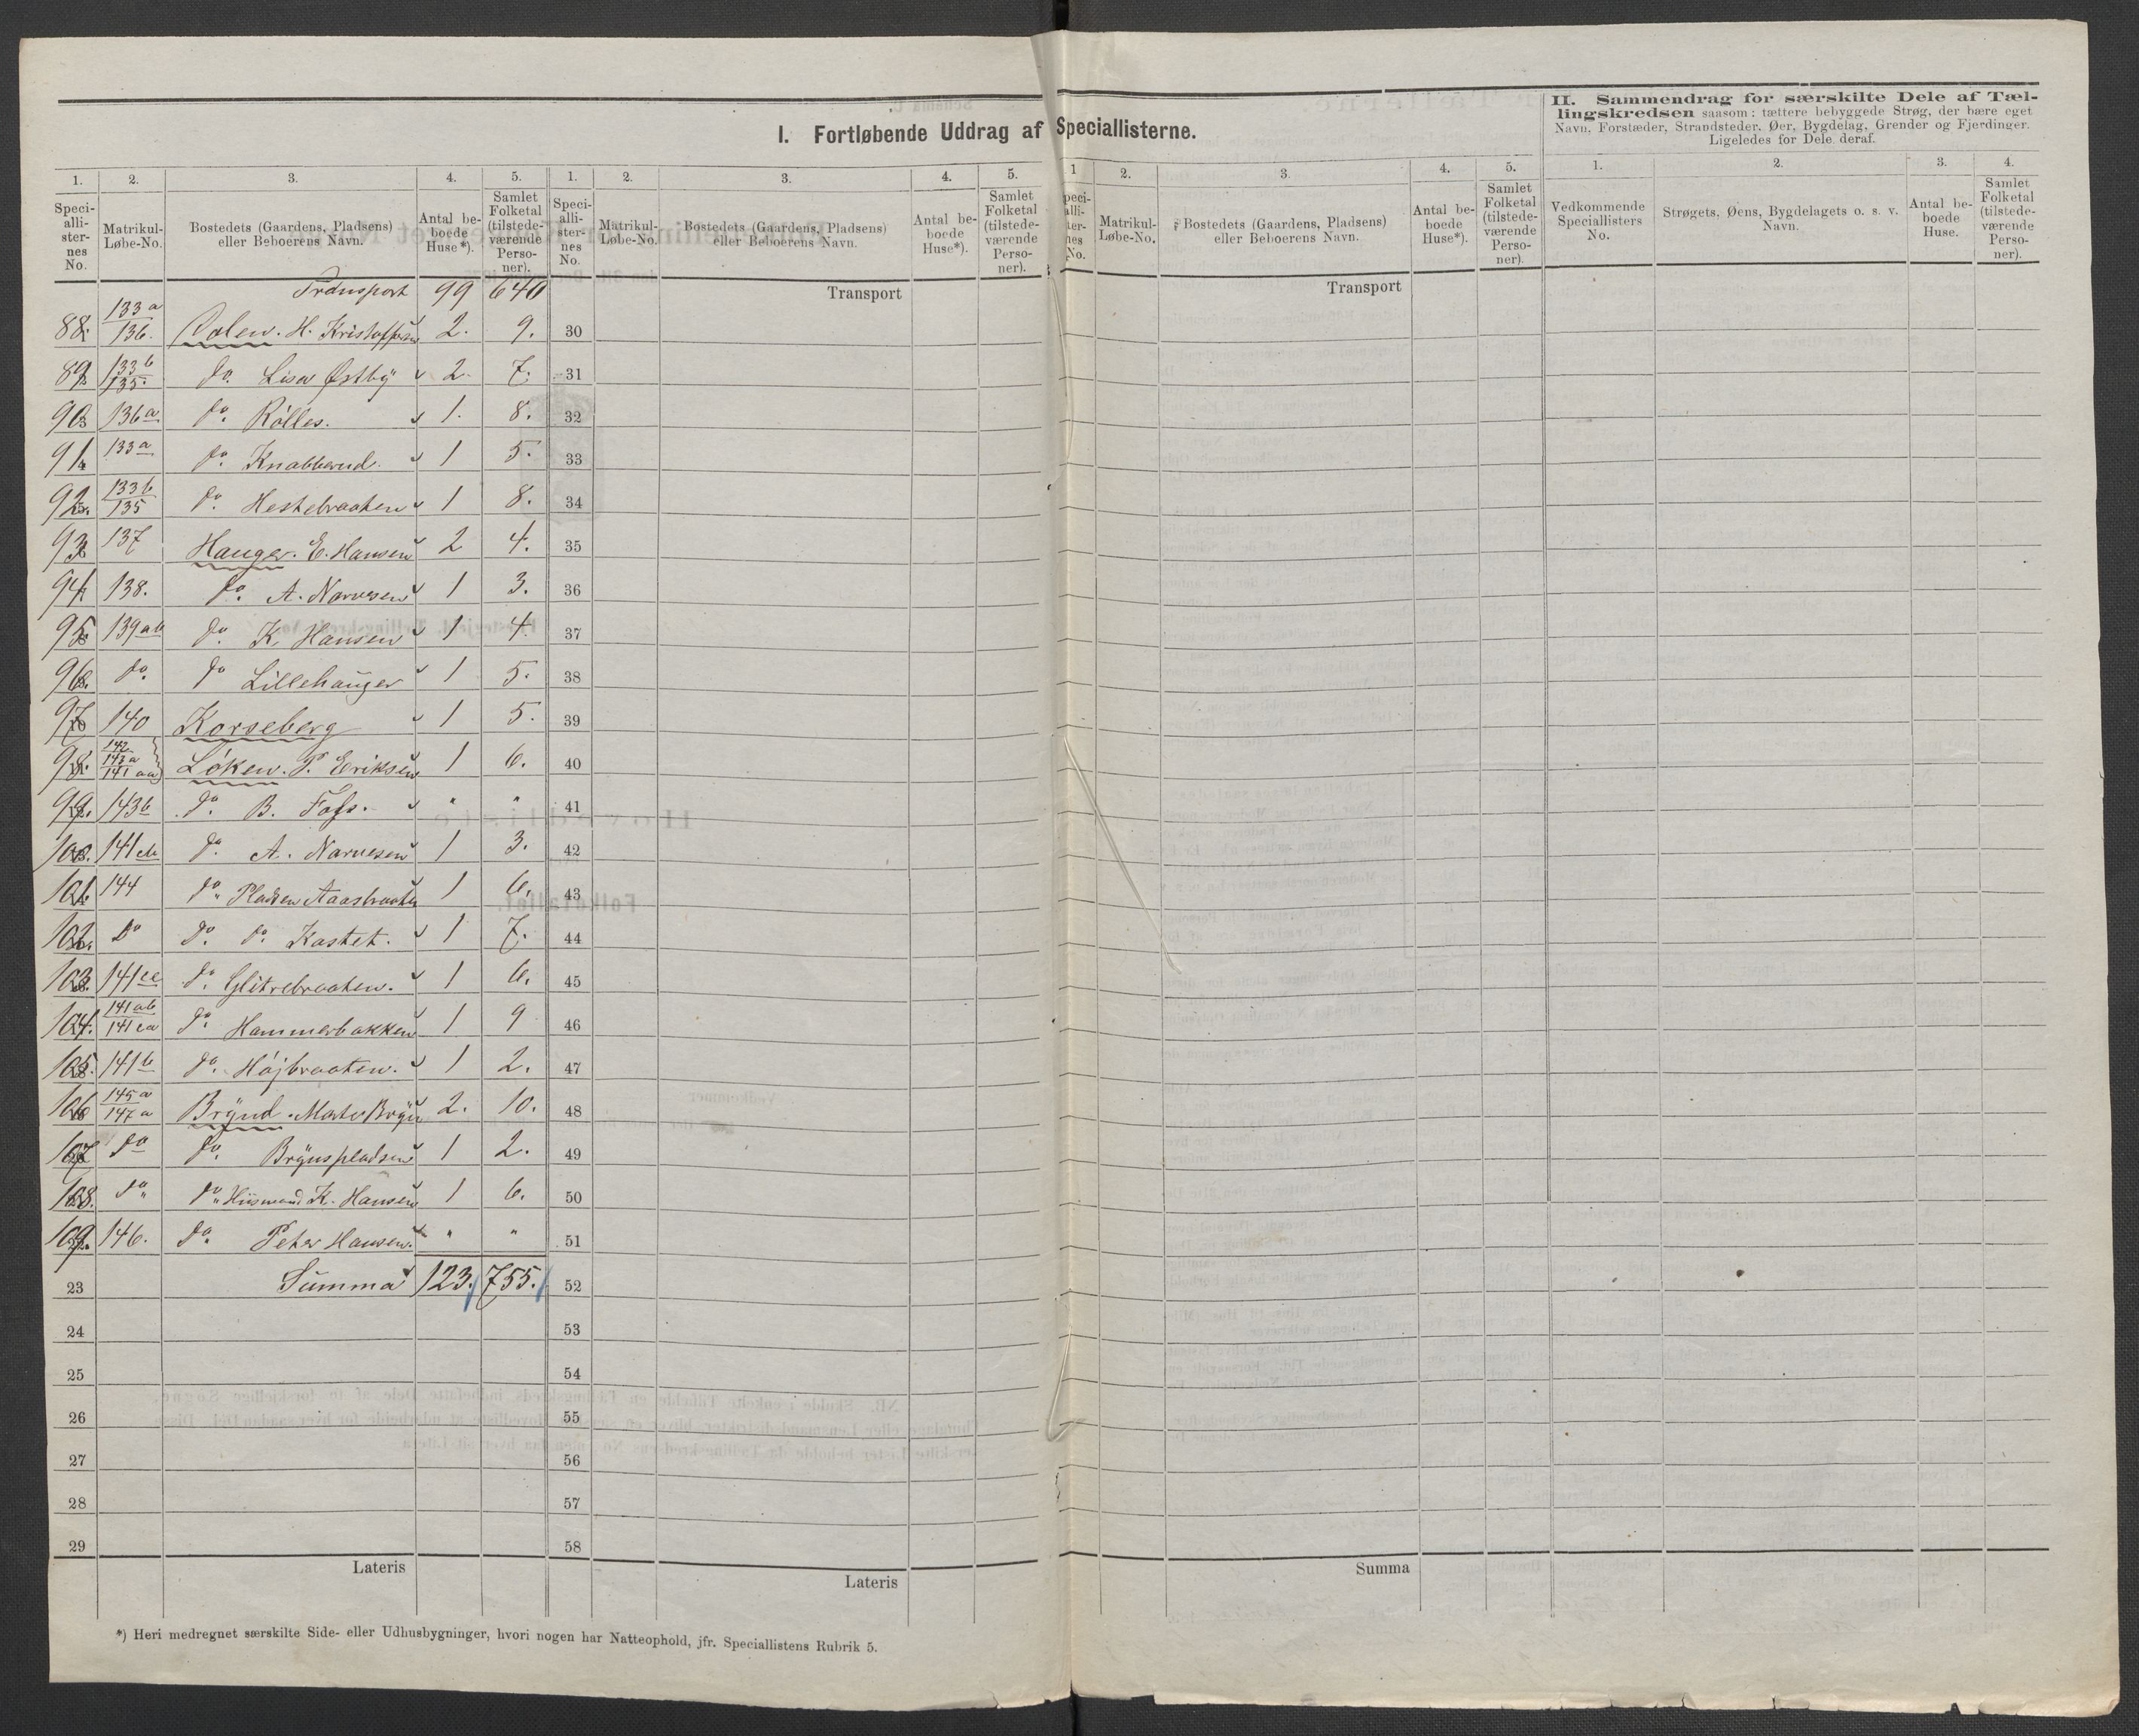 I. Fortløbende Uddrag af Speciallisterne.
II. Sammendrag for særskilte Dele af Tæl-
lingskredsen saasom: tættere bebyggede Strøg, der bære eget
Navn, Forstæder, Strandsteder, Øer, Bygdelag, Grender og Fjerdinger.
Ligeledes for Dele deraf.
1. 2. 3. 4. 5. 1. 2. 3. 4. 5. 1 2. 3. 4. 5. 1. 2. 3. 4.
Speci-
alli-
ster-
nes
No.
Matrikul-
Løbe-No.
Bostedets (Gaardens, Pladsens)
eller Beboerens Navn.
Antal be-
boede
Huse*).
Samlet
Folketal
(tilstede-
værende
Perso-
ner).
Speci-
alli-
ster-
nes
No.
Matrikul-
Løbe-No.
Bostedets (Gaardens, Pladsens)
eller Beboerens Navn.
Antal be-
boede
Huse*).
Samlet
Folketal
(tilstede-
værende
Perso-
ner).
peci-
alli-
ter-
nes
No.
Matrikul-
Løbe-No.
Bostedets (Gaardens, Pladsens)
eller Beboerens Navn.
Antal be-
boede
Huse*).
Samlet
Folketal
(tilstede-
værende
Perso-
ner).
Vedkommende
Speciallisters
No.
Strøgets, Øens, Bygdelagets o. s. v.
Navn.
Antal be-
boede
Huse.
Samlet
Folketal
(tilstede-
værende
Perso-
ner).
Transport 99 640 Transport Transport
88. 133a/136. H. Kristoffersen 2. 9. 30
89 133b/135. do. Lisa Østby 2. 7. 31
90 136a do. Rölles. 1. 8. 32
91 133a do. Knabberud. 1 5. 33
92 133b/135 do. Hestebraaten 1 8. 34
93 137 Hauger. E. Hansen 2 4. 35
94 138. do. A. Narvesen 1 3. 36
95 139ab do. K. Hansen 1 4. 37
96 do. do Lillehauger 1 5. 38
97 140 Korseberg 1 5. 39
98. 142 143a 141aa Löken. P. Eriksen 1 6. 40
99. 143b do. B. Foss. " " 41
100. 141 do. A. Narvesen 1 3. 42
101. 144 do. Pladsen Aasbraaten 1 6. 43
102. Do do. do. Kastet. 1 7. 44
103. 141 do. Glitrebraaten. 1 6. 45
104. 141ab/141ca do. Hammerbakken 1 9 46
105. 141b do. Höjbraaten. 1 2. 47
106 145a/147a Brÿnd. 2. 10. 48
107 Do do. Brÿnspladsen 1 2. 49
108. do. do. Husmand K. Hansen 1 6. 50
109. 146. do. Peter Hansen. " " 51
23 Summa 123. 755. 52
24 53
25 54
26 55
27 56
28 57
29 58
Lateris Lateris Summa
*) Heri medregnet særskilte Side- eller Udhusbygninger, hvori nogen har Natteophold, jfr. Speciallistens Rubrik 5.